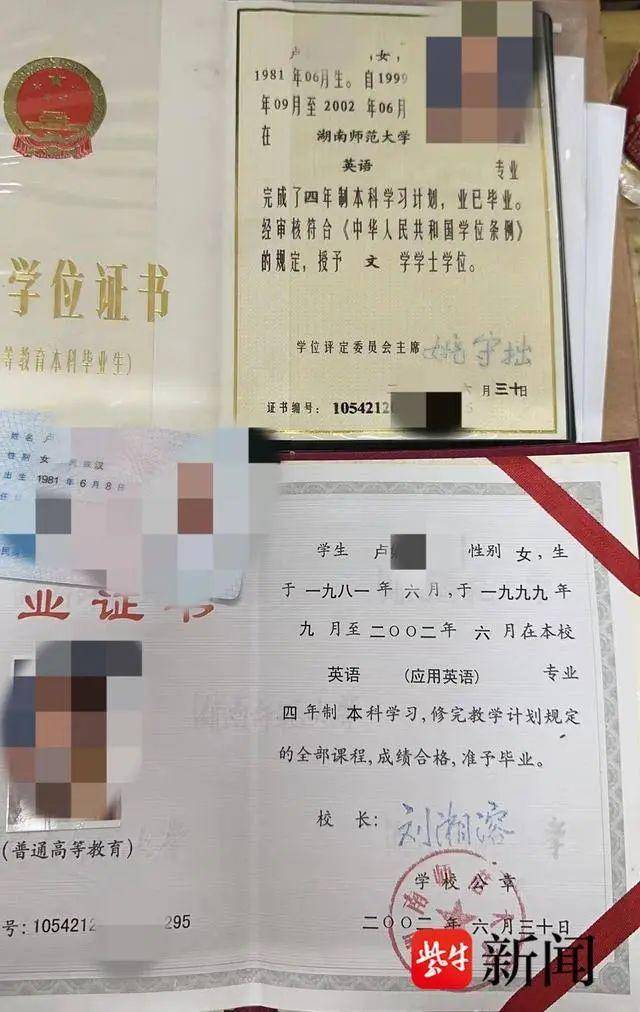 卢
,女,
1981 年06月生。自1999
年09月至 2002 年06月
在 湖南师范大学
英语 专业
完成了四年制本科学习计划,业已毕业。
经审核符合《中华人民共和国学位条例》
的规定,授予 文 学学士学位。
学位评定委员会主席
姚守拙
二 六月三十日
证书编号: 1054212
学位证书
等教育本科毕业生)
姓名 卢
性别 女 民族 汉
出生 1981 年 6 月 8 日
业证书
学生 卢 性别 女, 生
于一九八一年 六 月, 于一九九九年
九 月至二〇〇二年 六 月在本校
英语 (应用英语) 专业
四 年制 本 科学习, 修完教学计划规定
的全部课程, 成绩合格, 准予毕业。
校 长:
刘湘溶
(普通高等教育)
学校公章
号: 1054212 295
二〇〇二年 六月三十日
紫牛 新闻